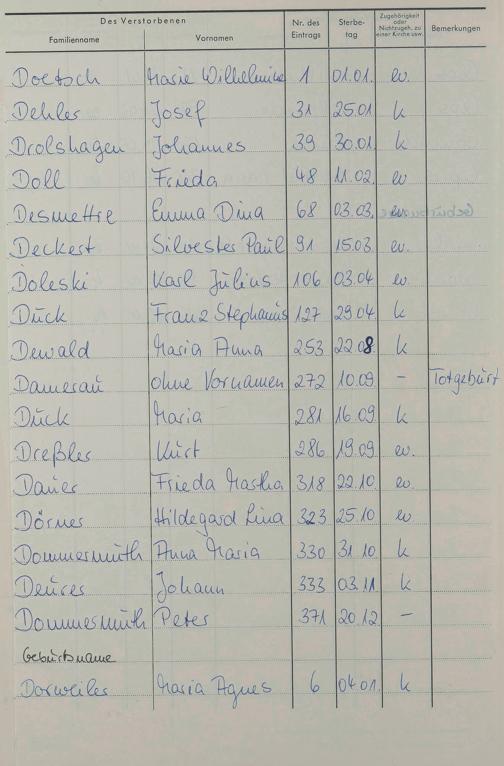 Des Verstorbenen Nr. des Eintrags Sterbe-tag Zugehörigkeit oder Nichtzugeh. zu einer Kirche usw. Bemerkungen
Familienname Vornamen
Doetsch Marie Wilhelmine 1 01.01. ev.
Dehler Josef 31 25.01 k
Drolshagen Johannes 39 30.01 k
Doll Frieda 48 11.02. ev
Desmettre Emma Dina 68 03.03. ev.
Deckert Silvester Paul 91 15.03 ev.
Doleski Karl Julius 106 03.04 ev.
Duck Franz Stephanus 127 29.04 k
Dewald Maria Anna 253 22.08. k
Damerau ohne Vornamen 272 10.09. – Totgeburt
Duck Maria 281 16.09 k
Dreßler Kurt 286 19.09 ev.
Dauer Frieda Martha 318 22.10 ev.
Dörner Hildegard Lina 323 25.10 ev
Dommermuth Anna Maria 330 31.10 k
Deures Johann 333 03.11 k
Dommermuth Peter 371 20.12 –
Geburtsname
Dorweiler Maria Agnes 6 04.01. k